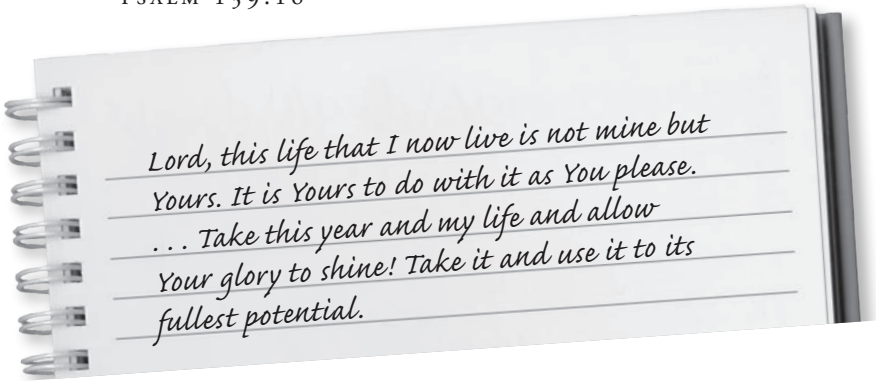 PSALM 139:16
Lord, this life that I now live is not mine but
Yours. It is Yours to do with it as You please.
. . . Take this year and my life and allow
Your glory to shine! Take it and use it to its
fullest potential.